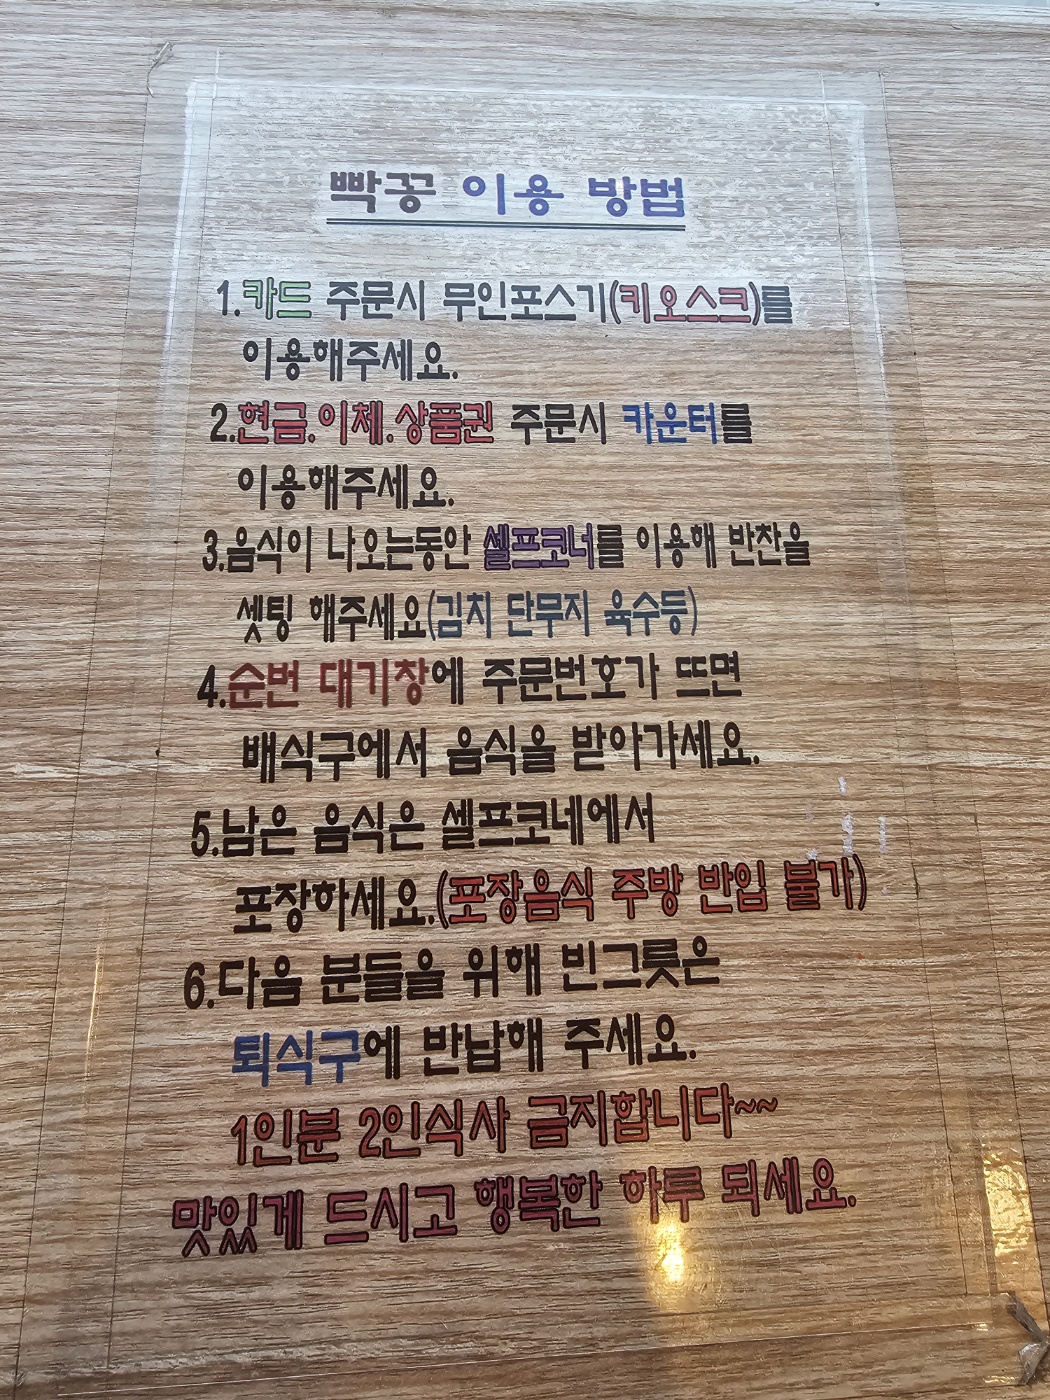 빡꽁 이용 방법
1.카드 주문시 무인포스기(키오스크)를
이용해주세요.
2.현금.이체.상품권 주문시 카운터를
이용해주세요.
3.음식이 나오는동안 셀프코너를 이용해 반찬을
셋팅 해주세요(김치 단무지 육수등)
4.순번 대기창에 주문번호가 뜨면
배식구에서 음식을 받아가세요.
5.남은 음식은 셀프코네에서
포장하세요.(포장음식 주방 반입 불가)
6.다음 분들을 위해 빈그릇은
퇴식구에 반납해 주세요.
1인분 2인식사 금지합니다~~
맛있게 드시고 행복한 하루 되세요.